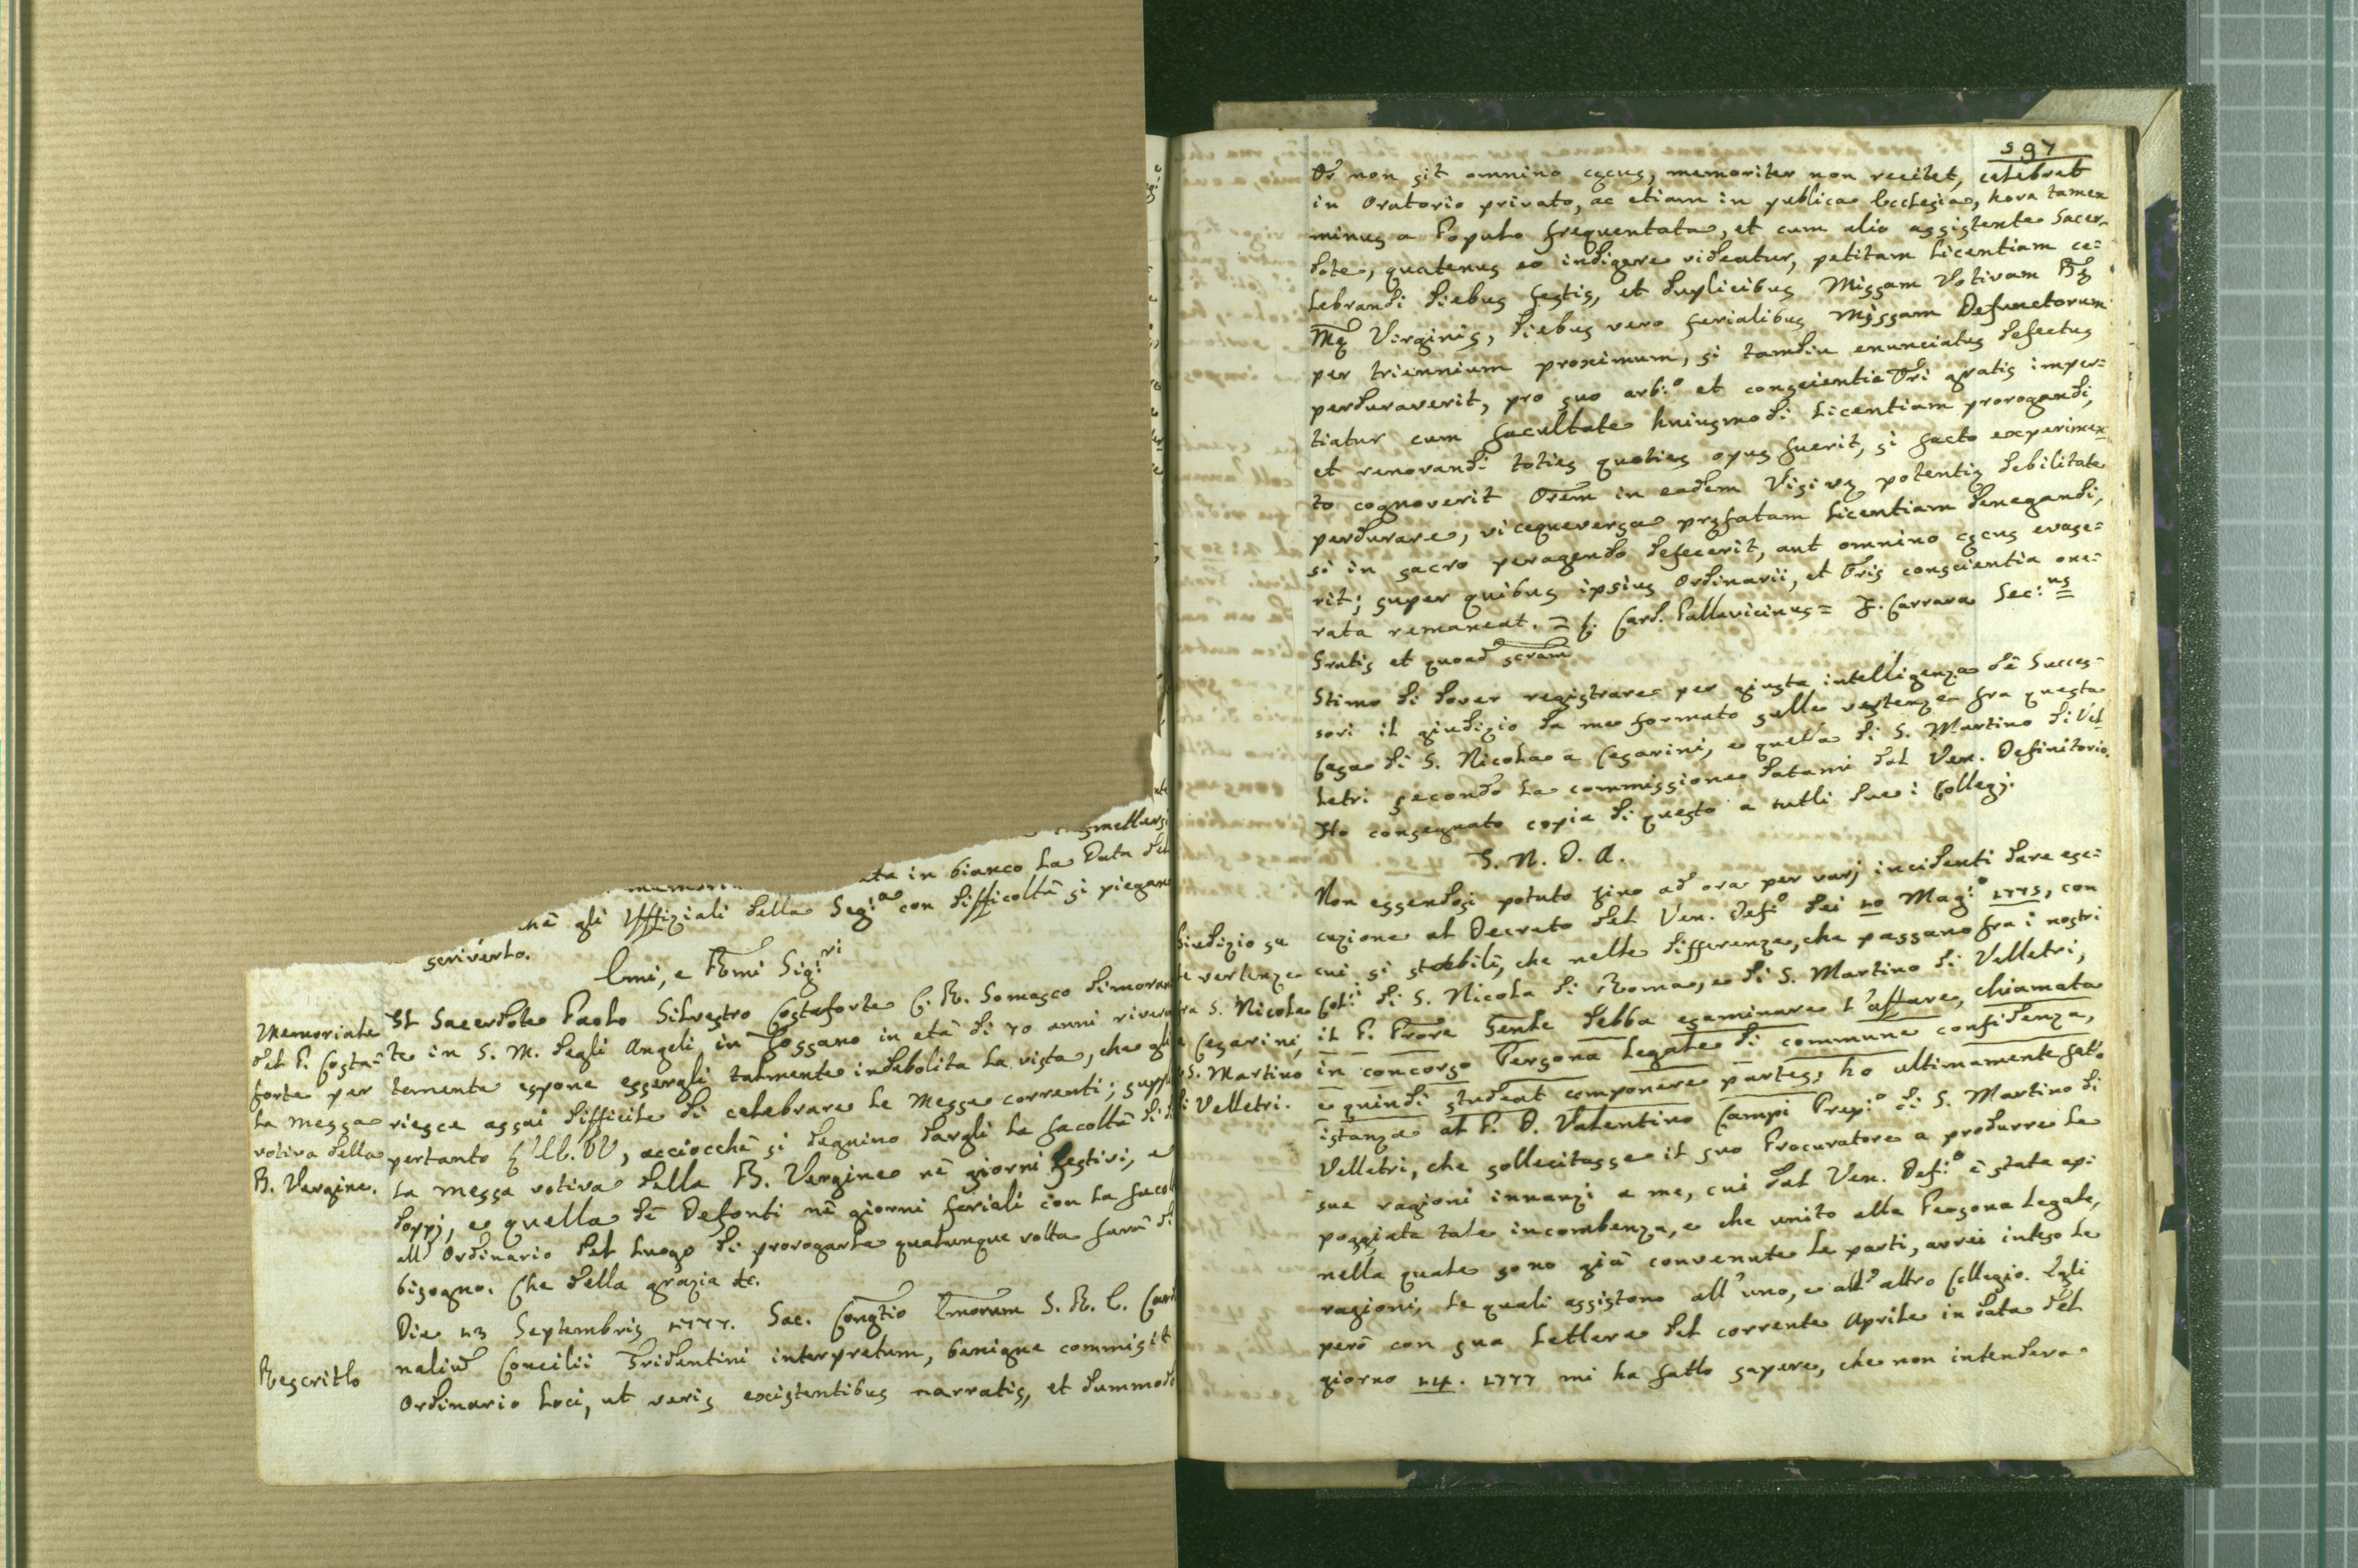 in bianco la Data del
gli Uffiziali della Seg:a con difficoltà si piegano
scriverlo.
Emi, e Rmi Sig:ri
Memoriale
del P. Costa=
forte per
la messa
votiva della
B. Vergine.
Il Sacerdote Paolo Silvestro Costaforte C. R. Somasco dimoran
te in S. M. degli Angeli in Fossano in età di 70 anni rivere
temente espone essergli talmente indebolita la vista, che gli
riesce assai difficile di celebrare le Messe correnti; supp
pertanto l'EE. VV, acciocchè si degnino dargli la facoltà di
la messa votiva della B. Vergine nè giorni festivi, e
doppj, e quella dè Defonti nè giorni feriali con la facol
all'Ordinario del Luogo di prorogarla qualunque volta farà di
bisogno. Che della grazia &c.
Rescritto
Die 13 Septembris 1777. Sac. Congtio Emorum S. R. E. Cardi
nalium Concilii Tridentini interpretum, benigne commisit
Ordinario loci, ut veris existentibus narratis, et dummodo
597
Or non sit omnino cęcus, memoriter non recitet, celebret
in Oratorio privato, ac etiam in publica Ecclesia, hora tamen
minus a Populo frequentata, et cum alio assistente Sacer=
dote, quatenus eo indigere videatur, petitam licentiam ce=
lebrandi diebus festis, et duplicibus Missam Votivam Bę
Mę Virginis, diebus vero ferialibus Missam Defunctorum
per triennium proximum, si tamdiu enunciatus defectus
perduraverit, pro suo arb:o et conscientia Ori gratis imper=
tiatur cum facultate huiusmodi licentiam prorogandi,
et renovandi toties quoties opus fuerit, si facto experimen
to cognoverit Orem in eadem Visivę potentię debilitate
perdurare, viceque versa pręfatam licentiam denegandi,
si in sacro peragendo defecerit, aut omnino cęcus evase=
rit; super quibus ipsius Ordinarii, et Oris conscientia one=
rata remaneat. = C. Card. Pallavicinus = F. Carrara Sec:us
Gratis et quoad scram
Stimo di dover registrare per giusta intelligenza dè Succes=
sori il giudizio da me formato sulle vertenze fra questa
Casa di S. Nicola a Cesarini, e quella di S. Martino di Vel
letri secondo la commissione datami dal Ven. Definitorio.
Ho consegnato copia di questo a tutti due i Collegj.
I. N. D. A.
Giudizio su
le vertenze
fra S. Nicola
a Cesarini,
e S. Martino
di Velletri.
Non essendosi potuto fino ad ora per varj incidenti dare ese=
cuzione al Decreto del Ven. Defi:o dei 10 Mag:o 1775, con
cui si stabilì, che nelle differenze, che passano fra i nostri
Coll:i di S. Nicola di Roma, e di S. Martino di Velletri,
il P. Prore Genle debba esaminare l'affare, chiamata
in concorso Persona legale di commune confidenza,
e quindi studeat componere partes; ho ultimamente fatto
istanza al P. D. Valentino Campi Prep:o di S. Martino di
Velletri, che sollecitasse il suo Procuratore a produrre le
sue ragioni innanzi a me, cui dal Ven. Def:o è stata ap=
poggiata tale incombenza, e che unito alla Persona legale,
nella quale sono già convenute le parti, avrei inteso le
ragioni, le quali assistono all'uno, e all'altro Collegio. Egli
però con sua Lettera del corrente Aprile in data del
giorno 14. 1777 mi ha fatto sapere, che non intendeva